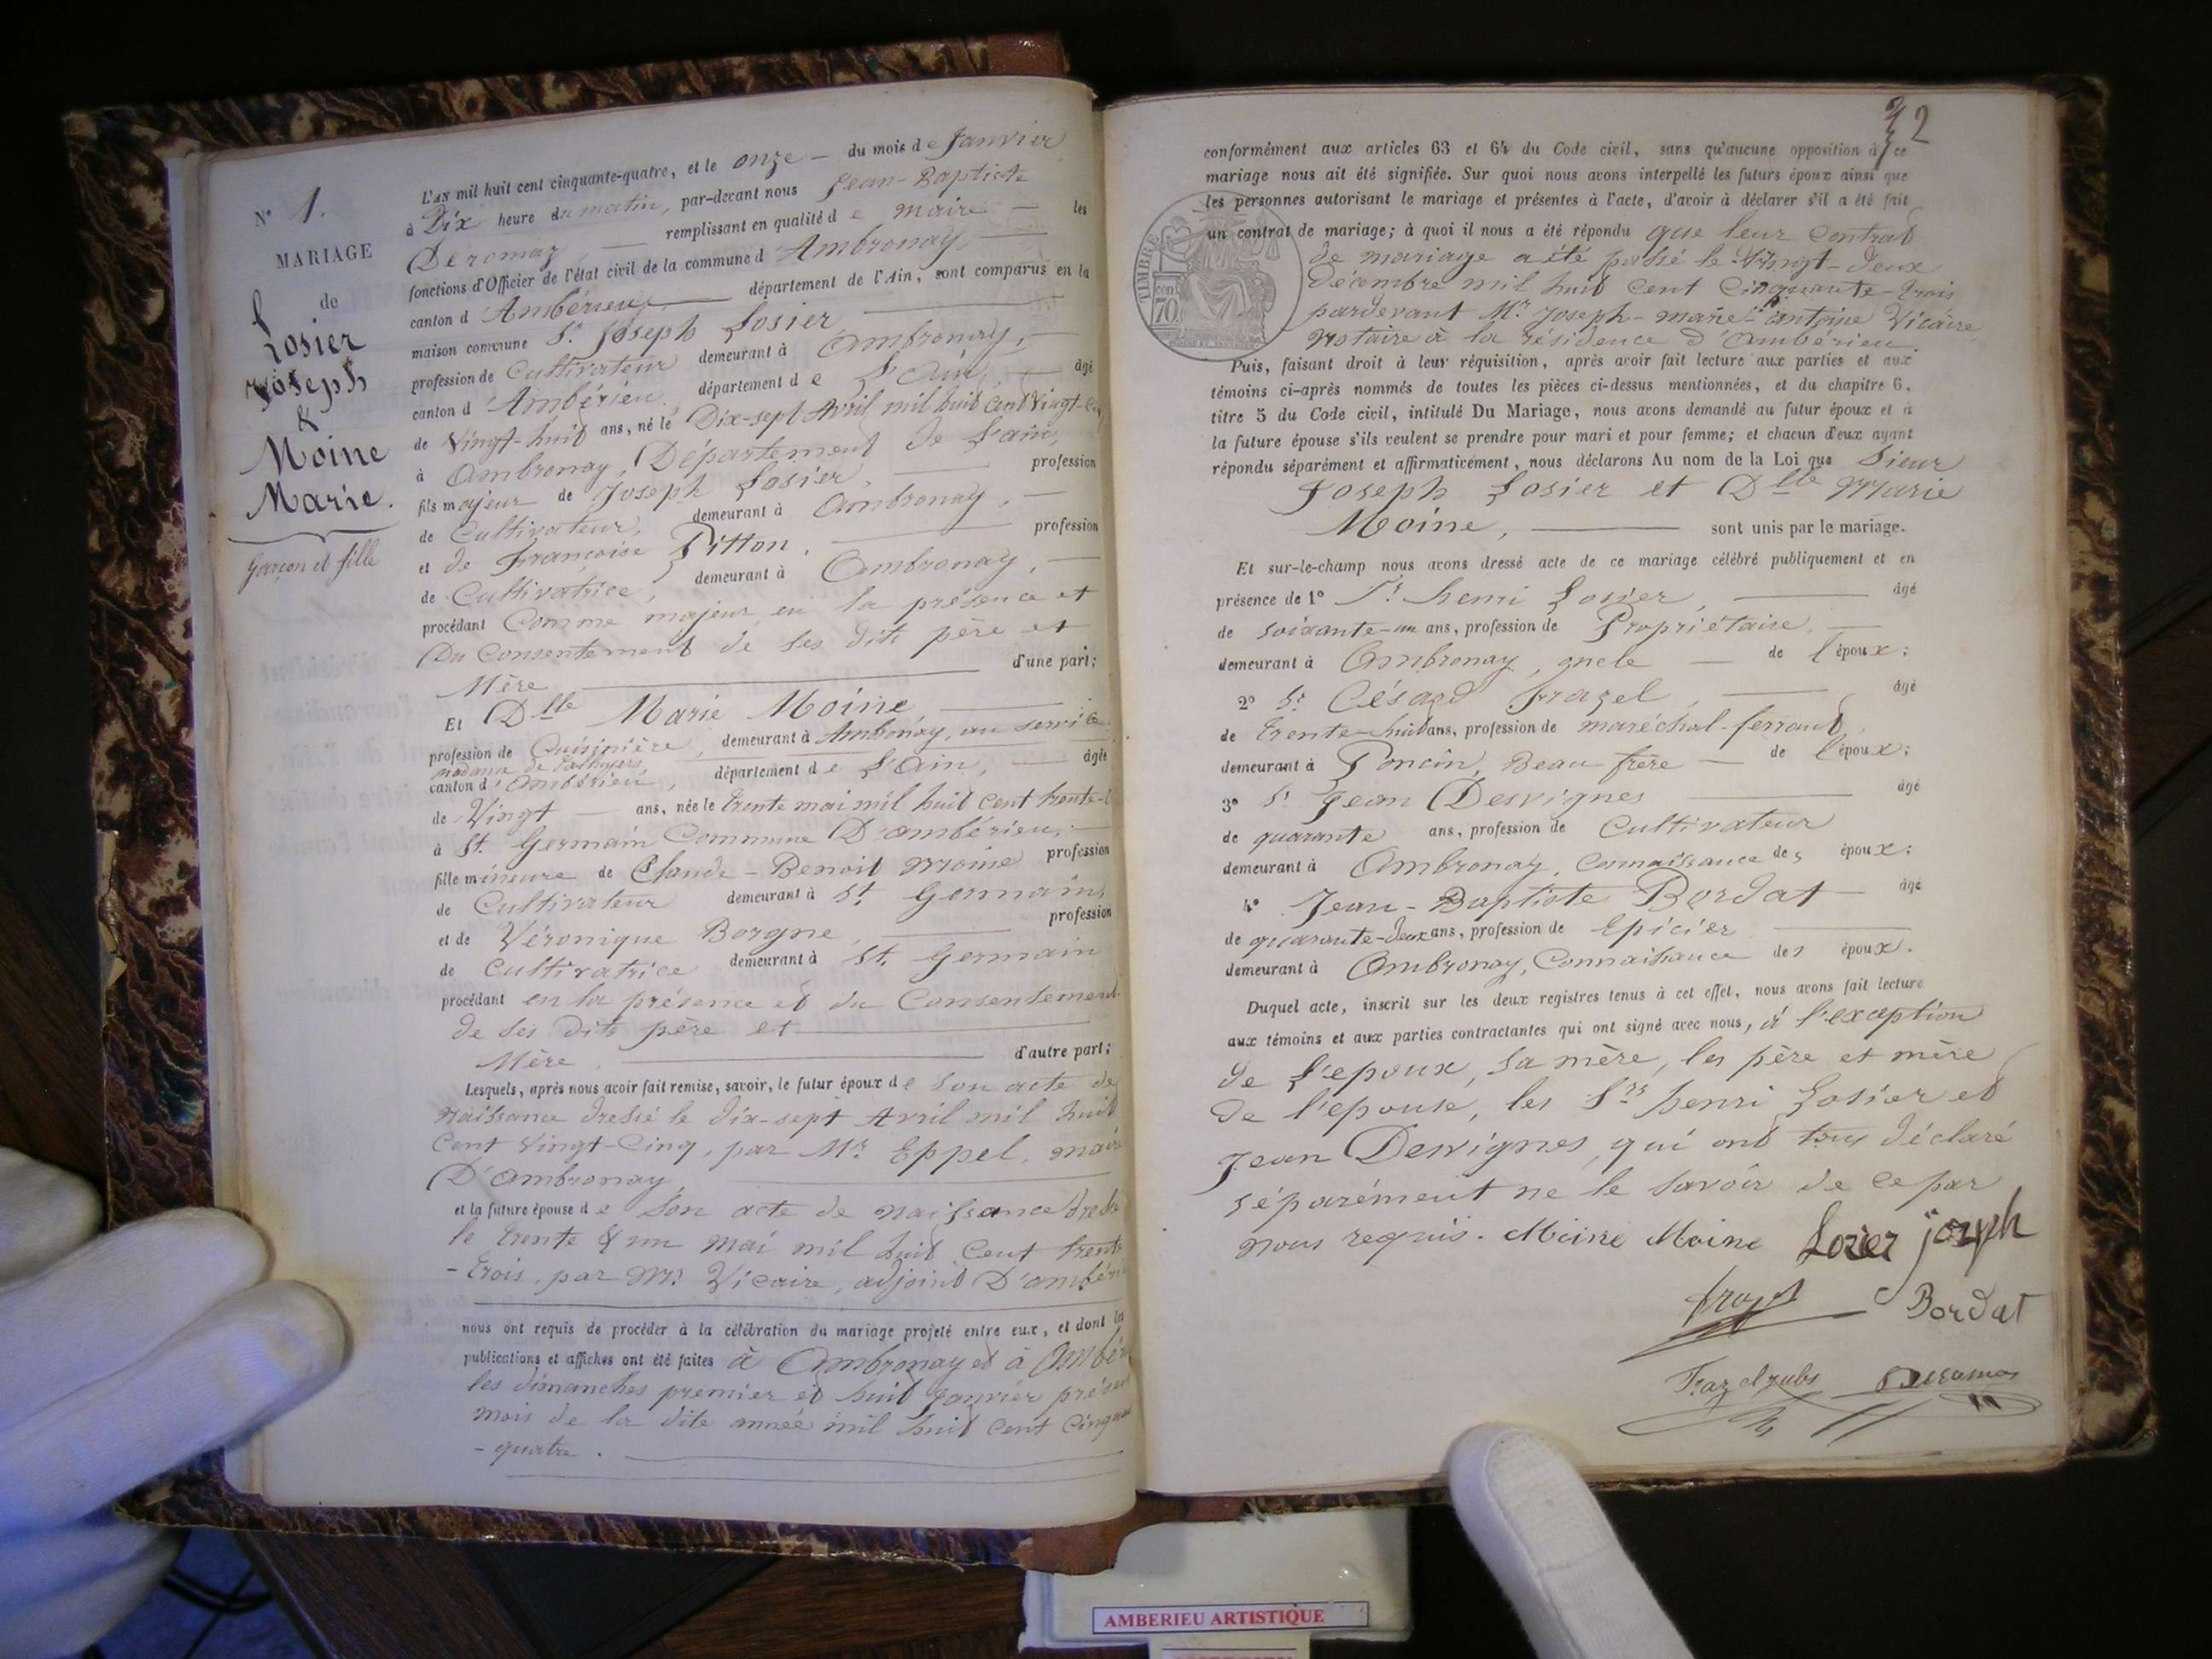 N° 1.
MARIAGE
de
Losier
Joseph
&
Moine
Marie.
Garçon et fille
L'AN mil huit cent cinquante-quatre, et le onze du mois de Janvier
à Dix heure du matin, par-devant nous Jean-Baptiste
Deromaz remplissant en qualité de maire les
fonctions d'Officier de l'état civil de la commune d'Ambronay
canton d'Ambérieu département de l'Ain, sont comparus en la
maison commune Sr. Joseph Losier
profession de Cultivateur demeurant à Ambronay,
canton d'Ambérieu département de L'Ain, âgé
de Vingt-huit ans, né le Dix-sept Avril mil huit cent Vingt-
à Ambronay, Département de L'ain,
fils majeur de Joseph Losier, profession
de Cultivateur, demeurant à Ambronay,
et de Françoise Pitton, profession
de Cultivatrice, demeurant à Ambronay,
procédant Comme majeur en la présence et
Du Consentement de ses dits père et
Mère d'une part;
Et Dlle Marie Moine
profession de Cuisinière, demeurant à Ambronay, au service
madame de
canton d'Ambérieu, département de L'Ain, âgée
de Vingt ans, née le trente mai mil huit cent trente-
à St. Germain Commune D'ambérieu,
fille mineure de Claude-Benoit Moine profession
de Cultivateur demeurant à St. Germain,
et de Véronique Borgne, profession
de Cultivatrice demeurant à St. Germain
procédant en la présence et du Consentement
de ses dits père et
Mère d'autre part;
Lesquels, après nous avoir fait remise, savoir, le futur époux de son acte de
naissance dressé le dix-sept Avril mil huit
Cent Vingt-Cinq, par Mr. Eppel, maire
D'Ambronay,
et la future épouse de son acte de naissance dressé
le trente & un mai mil huit Cent trente
-trois, par Mr. Vicaire, adjoint D'ambérieu
nous ont requis de procéder à la célébration du mariage projeté entre eux, et dont les
publications et affiches ont été faites à Ambronay et à Ambérieu
les dimanches premier et huit Janvier présent
mois de la dite année mil huit cent Cinquante
-quatre.
32
conformément aux articles 63 et 64 du Code civil, sans qu'aucune opposition à ce
mariage nous ait été signifiée. Sur quoi nous avons interpellé les futurs époux ainsi que
les personnes autorisant le mariage et présentes à l'acte, d'avoir à déclarer s'il a été fait
un contrat de mariage; à quoi il nous a été répondu que leur Contrat
de mariage a été passé le Vingt-deux
Décembre mil huit cent Cinquante-trois
pardevant Mr. Joseph-marie-antoine Vicaire
Notaire à la résidence D'ambérieu.
TIMBRE
cent
70
Puis, faisant droit à leur réquisition, après avoir fait lecture aux parties et aux
témoins ci-après nommés de toutes les pièces ci-dessus mentionnées, et du chapitre 6,
titre 5 du Code civil, intitulé Du Mariage, nous avons demandé au futur époux et à
la future épouse s'ils veulent se prendre pour mari et pour femme; et chacun d'eux ayant
répondu séparément et affirmativement, nous déclarons Au nom de la Loi que Sieur
Joseph Losier et Dlle Marie
Moine, sont unis par le mariage.
Et sur-le-champ nous avons dressé acte de ce mariage célébré publiquement et en
présence de 1° Sr. henri Losier, âgé
de soixante-un ans, profession de Propriétaire,
demeurant à Ambronay, oncle de l'époux;
2° Sr. César Frazel, âgé
de trente-huit ans, profession de maréchal-ferrant,
demeurant à Poncin, Beau frère de l'époux;
3° Sr. Jean Desvignes âgé
de quarante ans, profession de Cultivateur
demeurant à Ambronay, Connaissance des époux;
4° Jean-Baptiste Bordat âgé
de quarante-deux ans, profession de Epicier
demeurant à Ambronay, Connaissance des époux.
Duquel acte, inscrit sur les deux registres tenus à cet effet, nous avons fait lecture
aux témoins et aux parties contractantes qui ont signé avec nous, à l'exception
de L'epoux, sa mère, les père et mère
de l'epouse, les Srs henri Losier et
Jean Desvignes, qui ont tous déclaré
séparément ne le savoir de ce par
nous requis. Moine Lozier joseph
Bordat
Deromas
AMBERIEU ARTISTIQUE